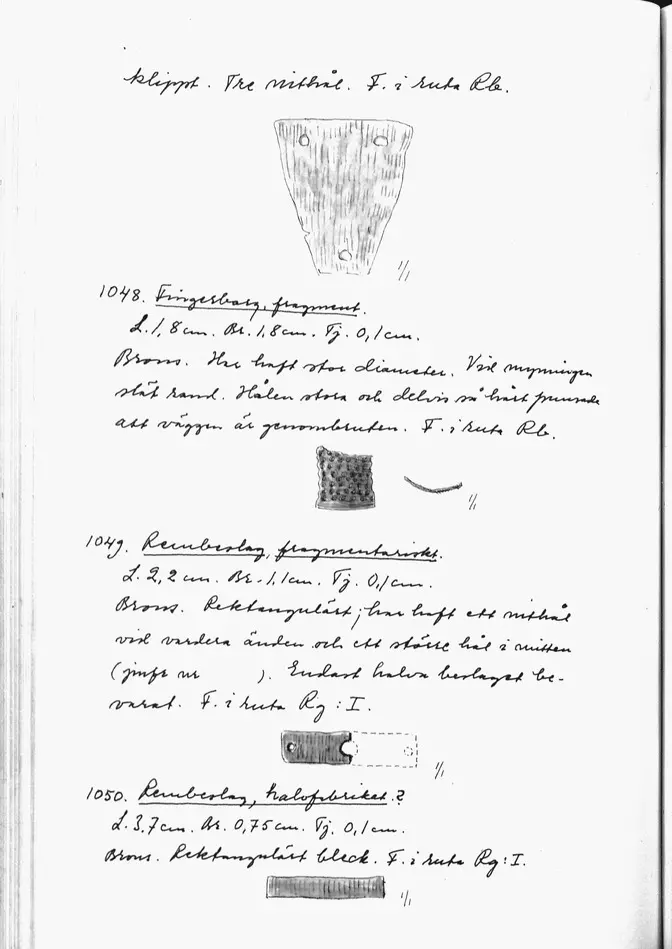 klippt. Tre nithål. F. i ruta Rb.
1/1
1048. Fingerborg, fragment.
L. 1,8 cm. Br. 1,8 cm. Tj. 0,1 cm.
Brons. Har haft stor diameter. Vid mynningen
slät rand. Hålen stora och delvis så hårt punsade
att väggen är genombruten. F. i ruta Rb.
1/1
1049. Rembeslag, fragmentariskt.
L. 2,2 cm. Br. 1,1 cm. Tj. 0,1 cm.
Brons. Rektangulärt; har haft ett nithål
vid vardera änden och ett större hål i mitten
(jmfr nr ). Endast halva beslaget be-
varat. F. i ruta Rg: I.
1/1
1050. Rembeslag, halvfabrikat.?
L. 3,7 cm. Br. 0,75 cm. Tj. 0,1 cm.
Brons. Rektangulärt bleck. F. i ruta Rg: I.
1/1